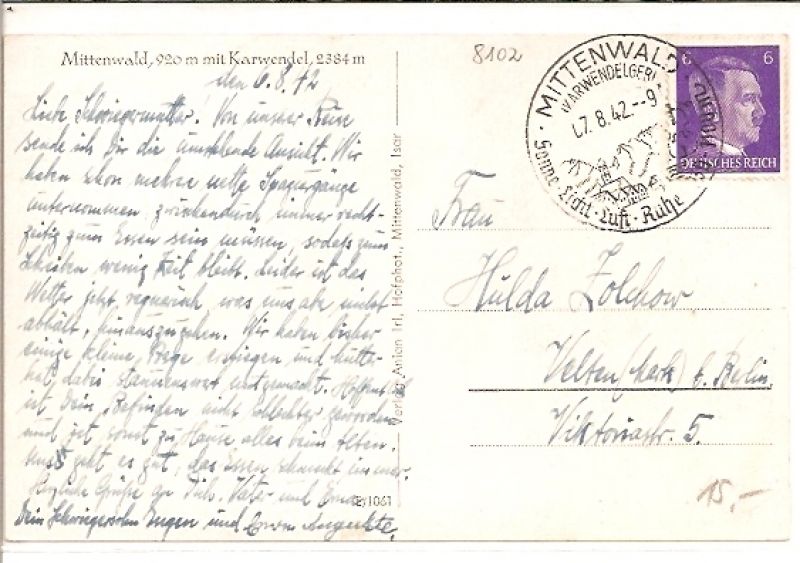 Mittenwald, 920 m mit Karwendel, 2384 m
den 6.8.42
Liebe Schwiegermutter! Von unser Reise
sende ich Dir die umstehende Ansicht. Wir
haben schon mehrere nette Spaziergänge
unternommen, zwischendurch immer recht-
zeitig zum Essen sein müssen, sodaß zum
Schreiben wenig Zeit bleibt. Leider ist das
Wetter jetzt regnerisch, was uns aber nicht
abhält, hinauszugehen. Wir haben bisher
einige kleine Berge erstiegen und Mutter
hat dabei staunenswert mitgemacht. Hoffentlich
ist Dein Befinden nicht schlechter geworden
und ist sonst zu Hause alles beim Alten.
Uns geht es gut, das Essen schmeckt immer.
Herzliche Grüße an Vater und Erna
Dein Schwiegersohn Eugen und Auguste.
Verlag Anton Irl, Hofphot., Mittenwald, Isar
1061
8102
MITTENWALD
(KARWENDELGEB
17.8.42.--9
Sonne · Licht · Luft · Ruhe
6 6
DEUTSCHES REICH
Frau
Hulda Zolchow
Velten (Mark) b. Berlin.
Viktoriastr. 5.
15,-